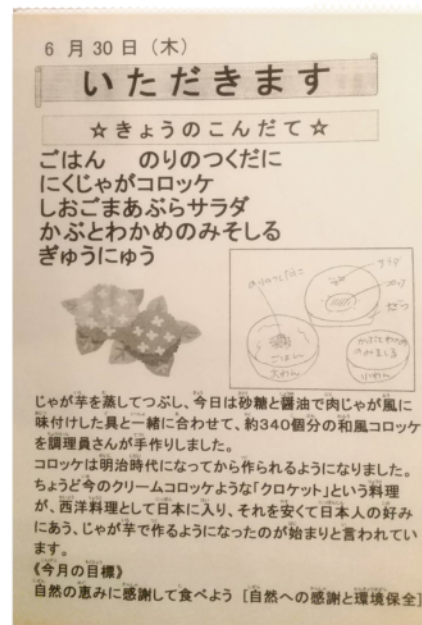 6月30日（木）
いただきます
☆きょうのこんだて☆
ごはん　のりのつくだに
にくじゃがコロッケ
しおごまあぶらサラダ
かぶとわかめのみそしる
ぎゅうにゅう
のりのつくだに
サラダ
コロッケ
ごはん
大わん
かぶとわかめ
のみそしる
小わん
じゃが芋を蒸してつぶし、今日は砂糖と醤油で肉じゃが風に
味付けした具と一緒に合わせて、約340個分の和風コロッケ
を調理員さんが手作りしました。
コロッケは明治時代になってから作られるようになりました。
ちょうど今のクリームコロッケような「クロケット」という料理
が、西洋料理として日本に入り、それを安くて日本人の好み
にあう、じゃが芋で作るようになったのが始まりと言われてい
ます。
《今月の目標》
自然の恵みに感謝して食べよう［自然への感謝と環境保全］